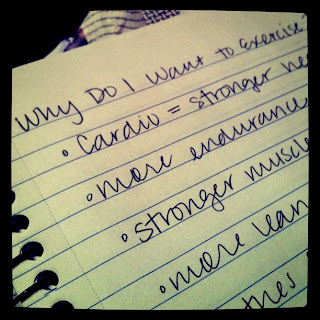 Why Do I Want to Exercise
• Cardio = stronger
• more endurance
• stronger muscle
• more lean